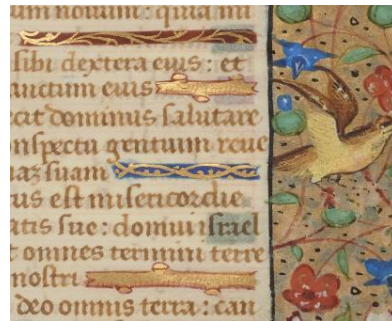 um novum : quia mi
sibi dextera eius : et
anctum eius
ecit dominus salutare
onspectu gentium reve
iam suam
us est misericordie
atis sue : domui israel
t omnes termini terre
nostri
deo omnis terra : can